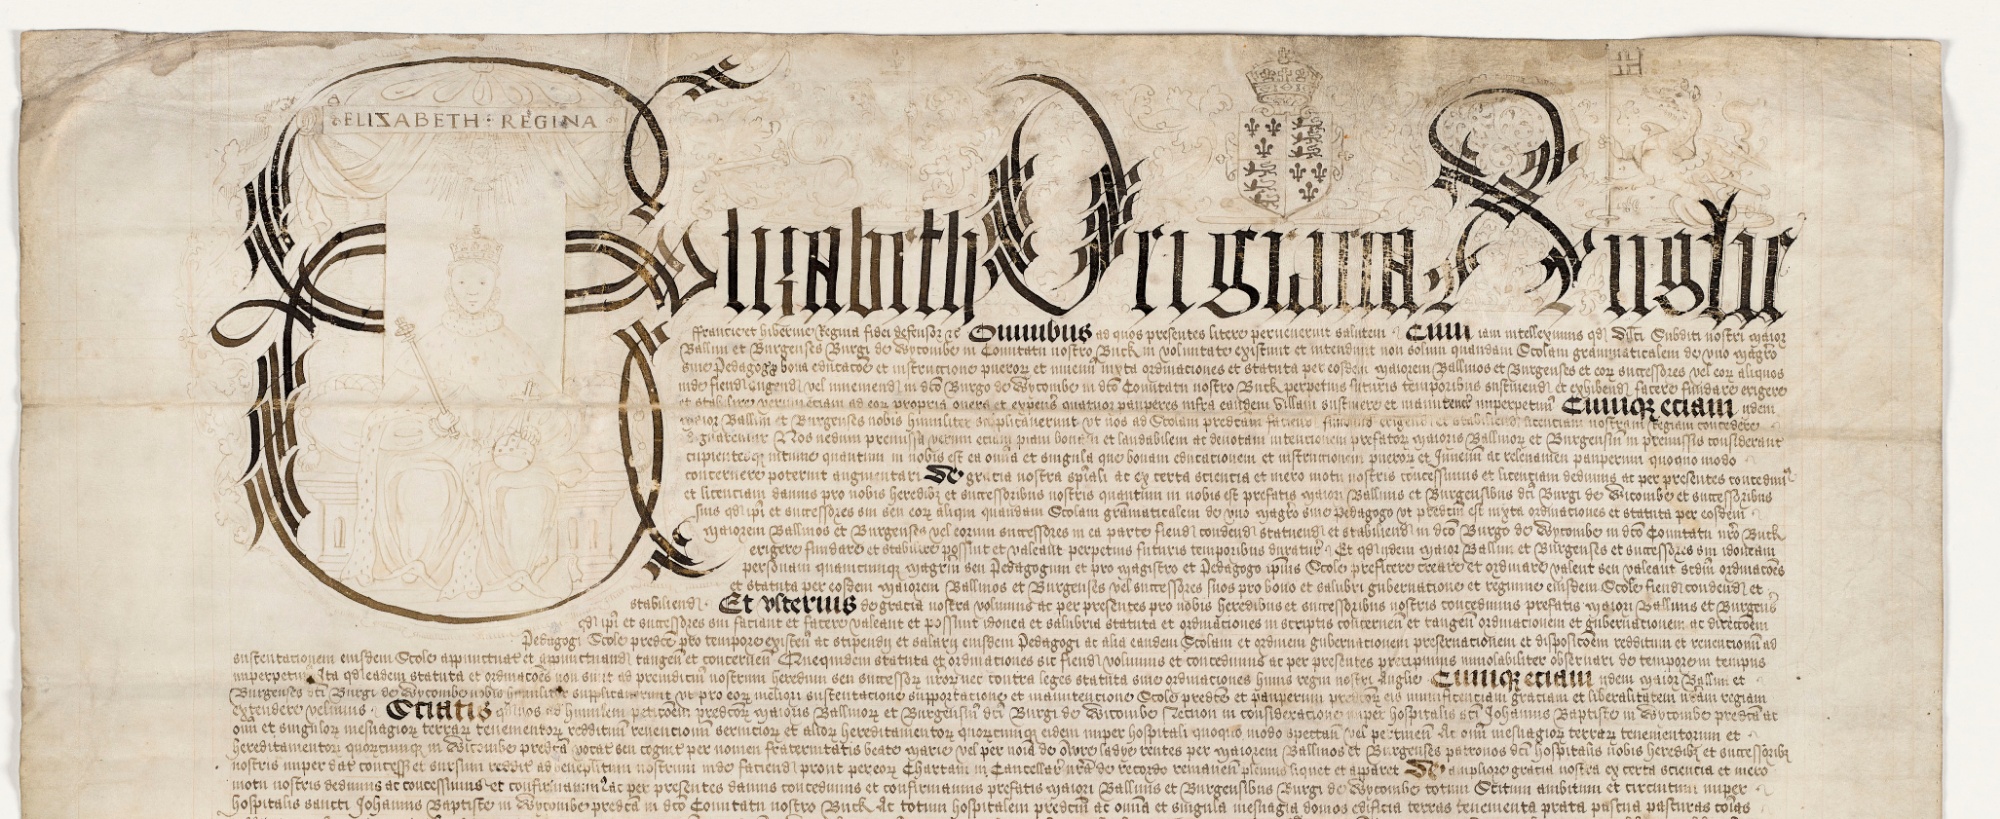 ELIZABETH : REGINA
Elizabeth Dei gracia Anglie
ffrancie et hibernie Regina fidei defensor &c Omnibus ad quos presentes litere pervenerint salutem Cum iam intelleximus qd Subditi nostri maior
Ballivi et Burgenses Burgi de Wycombe in Comitatu nostro Buck in voluntate existunt et intendunt non solum quandam Scolam grammaticalem de uno magro
sive Pedagogo bona educacoe et instructione pueror et iuvenu iuxta ordinaciones et statuta per eosdem maiorem Ballivos et Burgenses et eor successores vel eor aliquos
inde fiend vel inveniend in dco Burgo de Wycombe in dco Comitatu nostro Buck perpetuis futuris temporibus sustinend et exhibend facere fundare erigere
et stabilire verum eciam ad eor propria onera et expens quatuor pauperes infra eandem villam sustinere et manutenere imperpetuu Cumque eciam iidem
maior Ballivi et Burgenses nobis humiliter supplicaverunt ut nos ad Scolam predcam faciend fundand erigend et stabiliend licenciam nostram Regiam concedere
dignaremur Nos nedum premissa verum eciam piam bonam et laudabilem ac devotam intencionem prefator maioris Ballivor et Burgensiu in premissis considerant
cupientesque intime quantum in nobis est ea omia et singula que bonam educacionem et instructionem pueror et Juvenu ac relevamen pauperum quoquo modo
concernere poterint augmentari De gracia nostra spiali ac ex certa sciencia et mero motu nostris concessimus et licenciam dedimus ac per presentes concedim
et licenciam damus pro nobis heredibz et successoribus nostris quantum in nobis est prefatis maiori Ballivis et Burgensibus dci Burgi de Wicombe et successoribus
suis qd ipi et successores sui seu eor aliqui quandam Scolam gramaticalem de uno magro sive Pedagogo ut predcm est iuxta ordinaciones et statuta per eosdem
maiorem Ballivos et Burgenses vel eorum successores in ea parte fiend condend statuend et stabiliend in dco Burgo de Wycombe in dco Comitatu nro Buck
erigere fundare et stabilire possint et valeant perpetuis futuris temporibus duratur Et qd iidem maior Ballivi et Burgenses et successores sui idoneam
personam quamcumque magrm seu Pedagogum et pro magistro et Pedagogo ipius Scole preficere creare et ordinare valeant seu valeant scdm ordinacoes
et statuta per eosdem maiorem Ballivos et Burgenses vel successores suos pro bono et salubri gubernatione et regimine eiusdem Scole fiend condend et
stabiliend Et ulterius de gracia nostra volumus ac per presentes pro nobis heredibus et successoribus nostris concedimus prefatis maiori Ballivis et Burgens
qd ipi et successores sui faciant et facere valeant et possint idonea et salubria statuta et ordinaciones in scriptis concernen et tangen ordinacionem et gubernationem ac direccoem
Pedagogi Scole predce pro tempore existen ac stipendii et salarii eiusdem Pedagogi ac alia eandem Scolam et ordinem gubernationem preservacionem et disposicoem reddituu et revencionu ad
sustentacionem eiusdem Scole appunctuat et appunctuand tangen et concernen Quequidem statuta et ordinaciones sic fiend volumus et concedimus ac per presentes precipimus inviolabiliter observari de tempore in tempus
imperpetuu Ita qd eadem statuta et ordinacoes non sint ad preiudiciu nostrum heredum seu successor nror nec contra leges statuta sive ordinaciones huius regni nostri Anglie Cumque eciam iidem maior Ballivi et
Burgenses dci Burgi de Wycombe nobis humiliter supplicaverunt ut pro eor meliori sustentacione supportacione et manutencione Scole predce et pauperum predcor eis munificenciam graciam et liberalitatem nram regiam
extendere velimus Sciatis qd nos ad humilem peticoem predcor maioris Ballivor et Burgensiu dci Burgi de Wicombe Necnon in consideracione nuper hospitalis sci Johannis Baptiste in Wycombe predca ac
oim et singulor mesuagior terrar tenementor reddituu revencionu servicior et alior hereditamentor quorcumque eidem nuper hospitali quoquo modo spectan vel pertinen Ac oim mesuagior terrar tenementorum et
hereditamentor quorcumque in Wicombe predca vocat seu cognit per nomen fraternitatis beate marie vel per noia de owre ladye rentes per maiorem Ballivos et Burgenses patronos dci hospitalis nobis heredibz et successoribz
nostris nuper dat concess et sursum reddit ad beneplitum nostrum inde faciend prout per eor Chartam in Cancellar nra de recordo remanen plenius liquet et apparet De ampliore gracia nostra ex certa sciencia et mero
motu nostris dedimus ac concessimus et confirmavim ac per presentes damus concedimus et confirmamus prefatis maiori Ballivis et Burgensibus Burgi de Wycombe totum Scitum ambitum et circuitum nuper
hospitalis sancti Johannis Baptiste in Wycombe predca in dco Comitatu nostro Buck Ac totum hospitalem predcm ac omia et singula mesuagia domos edificia terras tenementa prata pascua pasturas coias